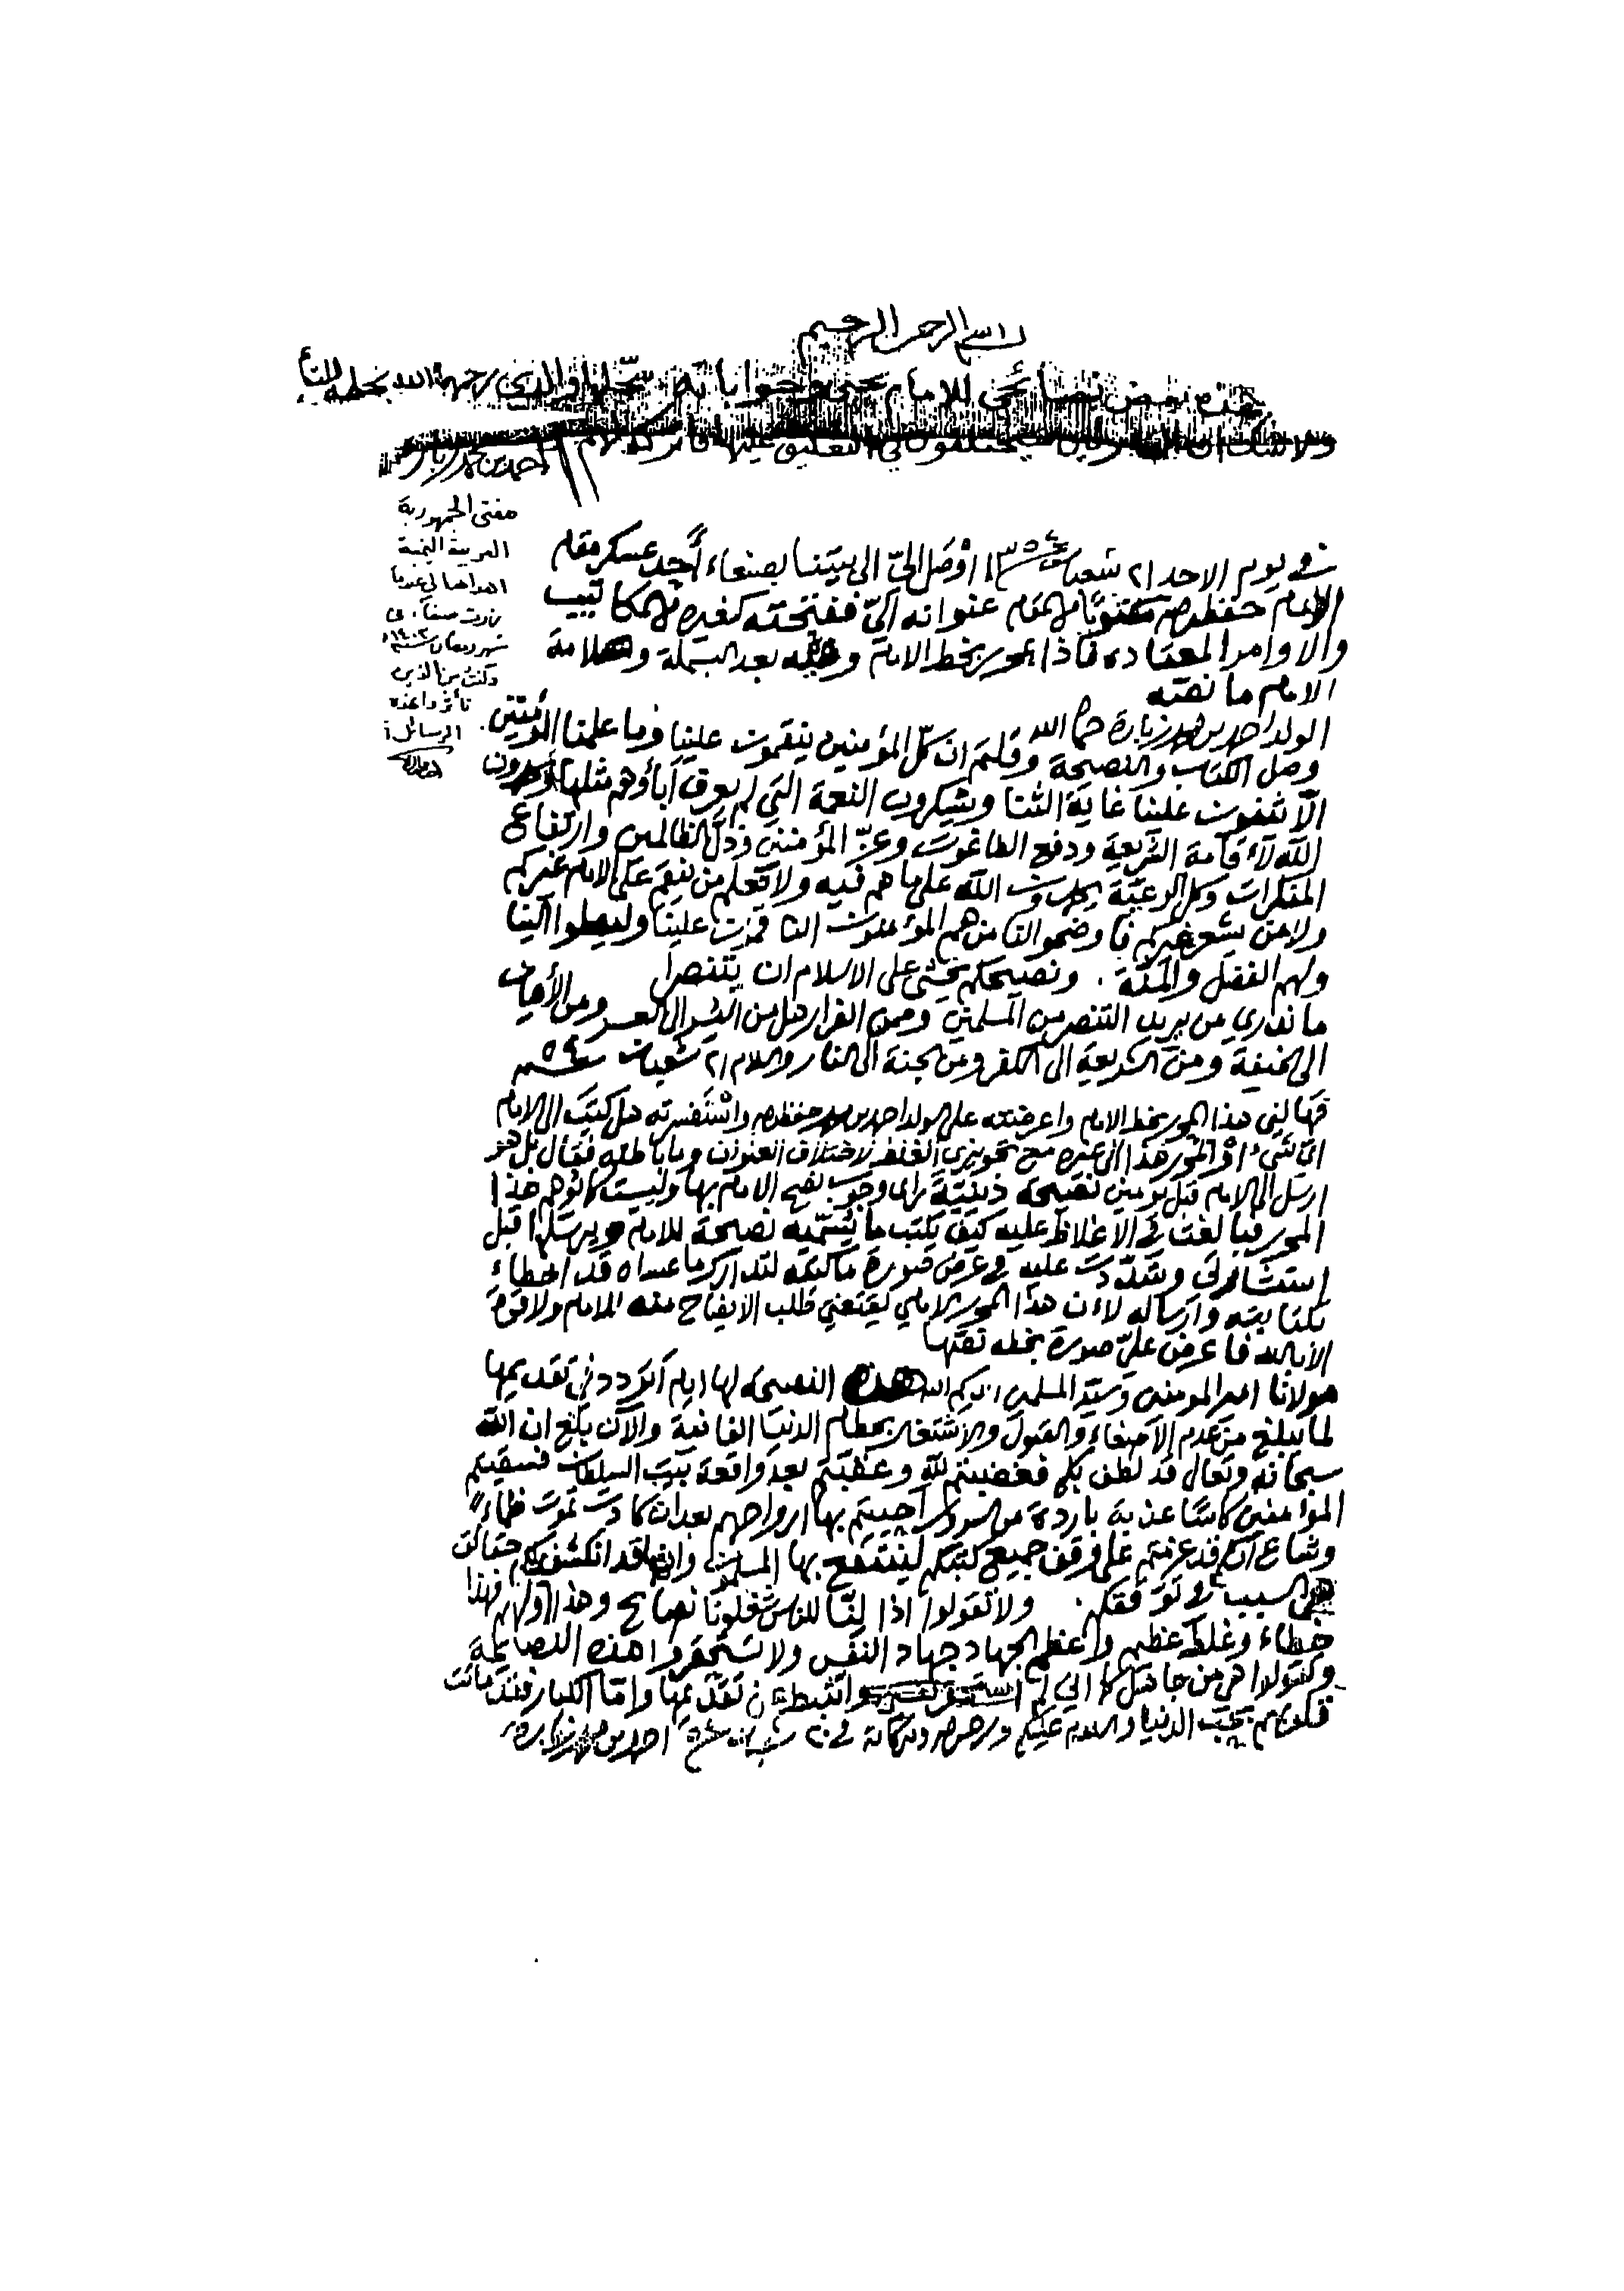 بسم الله الرحمن الرحيم
هذه بعض نصائحي للامام يحيى وجواباته سجلها والدي رحمه الله بخطه
ولا شك ان سيختلفون في التعليق عليها احمد بن محمد زباره
مفتي الجمهورية
العربية اليمنية
اهداها لي عندما
زرت صنعاء في
شهر رمضان سنة ١٤٠٢
وكنت من الذين
تأثروا بهذه
الرسائل
في يوم الاحد ٢١ شعبان سنة ١٣٥٤ اوصل اليّ الى بيتنا بصنعاء أحد عسكر مقام
الإمام حفظه الله مكتوبًا من المقام عنوانه اليّ ففتحته كغيره من المكاتيب
والاوامر المعتاده فاذا المحرر بخط الامام وفيه بعد البسملة وعلامة
الامام ما نصّه
الولد احمد بن محمد زبارة حماه الله
وصل الكتاب والنصيحة وقلتم ان كلّ المؤمنين ينقمون علينا وما علمنا المؤمنين
الّا يثنون علينا غاية الثنا ويشكرون النعمة التي لم يعرف آباؤهم مثلها ويحمدون
الله لاقامة الشريعة ودفع الطاغوت وعزّ المؤمنين وذلّ الظالمين وارتفاع
المنكرات وكل الرعيّة يحمدون الله على ما هم فيه ولا نعلم من ينقم على الامام غيركم
ولا من يشعر غيركم فاوضحوا لنا من هم المؤمنون الناقمون علينا وليصلوا الينا
ولهم الفضل والمنّة . ونصيحتكم يخشى على الاسلام ان يتنصر
ما ندري من يريد التنصر من المسلمين وممن الفرار هل من اليسر الى العسر ومن الأمان
الى الخيفة ومن الشريعة الى الكفر ومن الجنة الى النار والسلام ٢١ شعبان سنة ٥٤
فهالني هذا المحرر بخط الامام واعرضته على الولد احمد بن محمد حفظه الله واستفسرته هل كتب الى الامام
اي شيء او المحرر هذا الى غيره مع تجويزي الغلط لاختلاف العنوان وما باطنه فقال بل هو
ارسل الى الامام قبل يومين نصيحة دينيّة راى وجوب نصح الامام بها وليست كما توهم هذا
المحرر فبالغت في الاغلاظ عليه كيف يكتب ما يسمّيه نصيحة للامام ويرسلها قبل
استشارتي وشدّدت عليه في عرض صورة ما كتبه لتدارك ما عساه قد اخطاء
بكتابته وارساله لان هذا المحرر الامامي يقتضي طلب الايضاح منه للامام ولا قوة
الا بالله فاعرض عليّ صورة بخطه نصّها
مولانا امير المومنين وسيّد المسلمين ايدكم الله هذه النصيحة لها ايام اتردد في تقديمها
لما يبلغ من عدم الاصغاء والقبول والاشتغال بحطام الدنيا الفانية والآن بلغ ان الله
سبحانه وتعالى قد لطف بكم فغضبتم لله وعقبتم بعد واقعة بيت السلطان فسقيتم
المؤمنين كاسًا عذبة باردة من السرور احييتم بها ارواحهم بعد ان كادت تموت ظماءً
وشاع انكم قد عزمتم على وقف جميع كتبكم لينتفع بها المسلمون وانها قد انكشفت لكم حقائق
هي السبب في توفقكم . ولا تقولوا اذا لنّا للناس شغلونا نصايح وهذا اولهم فهذا
خطاء وغلط عظيم واعظم الجهاد جهاد النفس ولا تستحقروا هذه النصايحة
وتقولوا هي من جاهل واثبط عن تقديمها وامّا الكبار فقد ماتت
قلوبهم بحبّ الدنيا والسلام عليكم ورحمة الله وبركاته في ٢٠ شعبان سنة ٥٤ احمد بن محمد زباره